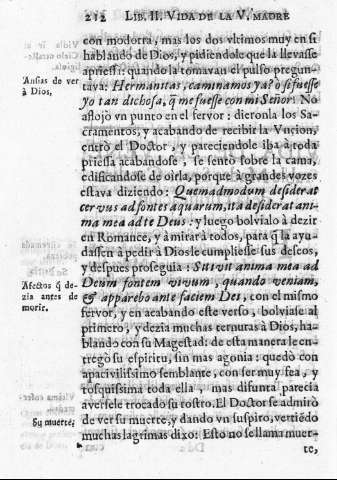 212 LIB. II. VIDA DE LA V. MADRE
con modorra, mas los dos vltimos muy en si
hablando de Dios, y pidiendole que la llevasse
apriessa: quando la tomavan el pulso pregun-
Ansias de ver
à Dios.
tava: Hermanitas, caminamos ya? ò si fuesse
yo tan dichosa, q̃ me fuesse con mi Señor! No
aflojò vn punto en el fervor: dieronla los Sa-
cramentos, y acabando de recibir la Vncion,
entrò el Doctor, y pareciendole iba à toda
priessa acabandose, se sentò sobre la cama,
edificandose de oirla, porque à grandes vozes
estava diziendo: Quemadmodum desiderat
cervus ad fontes aquarum, ita desiderat ani-
ma mea ad te Deus: y luego bolvialo à dezir
en Romance, y à mirar à todos, para q̃ la ayu-
dassen à pedir à Dios le cumpliesse sus deseos,
y despues proseguia: Sitivit anima mea ad
Afectos q̃ de-
zia antes de
morir.
Deum fontem vivum, quando veniam,
& apparebo ante faciem Dei, con el mismo
fervor, y en acabando este verso, bolviase al
primero, y dezia muchas ternuras à Dios, ha-
blando con su Magestad: de esta manera le en-
tregò su espiritu, sin mas agonia: quedò con
apacivilissimo semblante, con ser muy fea, y
tosquissima toda ella, mas difunta parecia
averse le trocado su rostro. El Doctor se admirò
Su muerte;
de ver su muerte, y dando vn suspiro, vertiẽdo
muchas lagrimas dixo: Esto no se llama muer-
te,